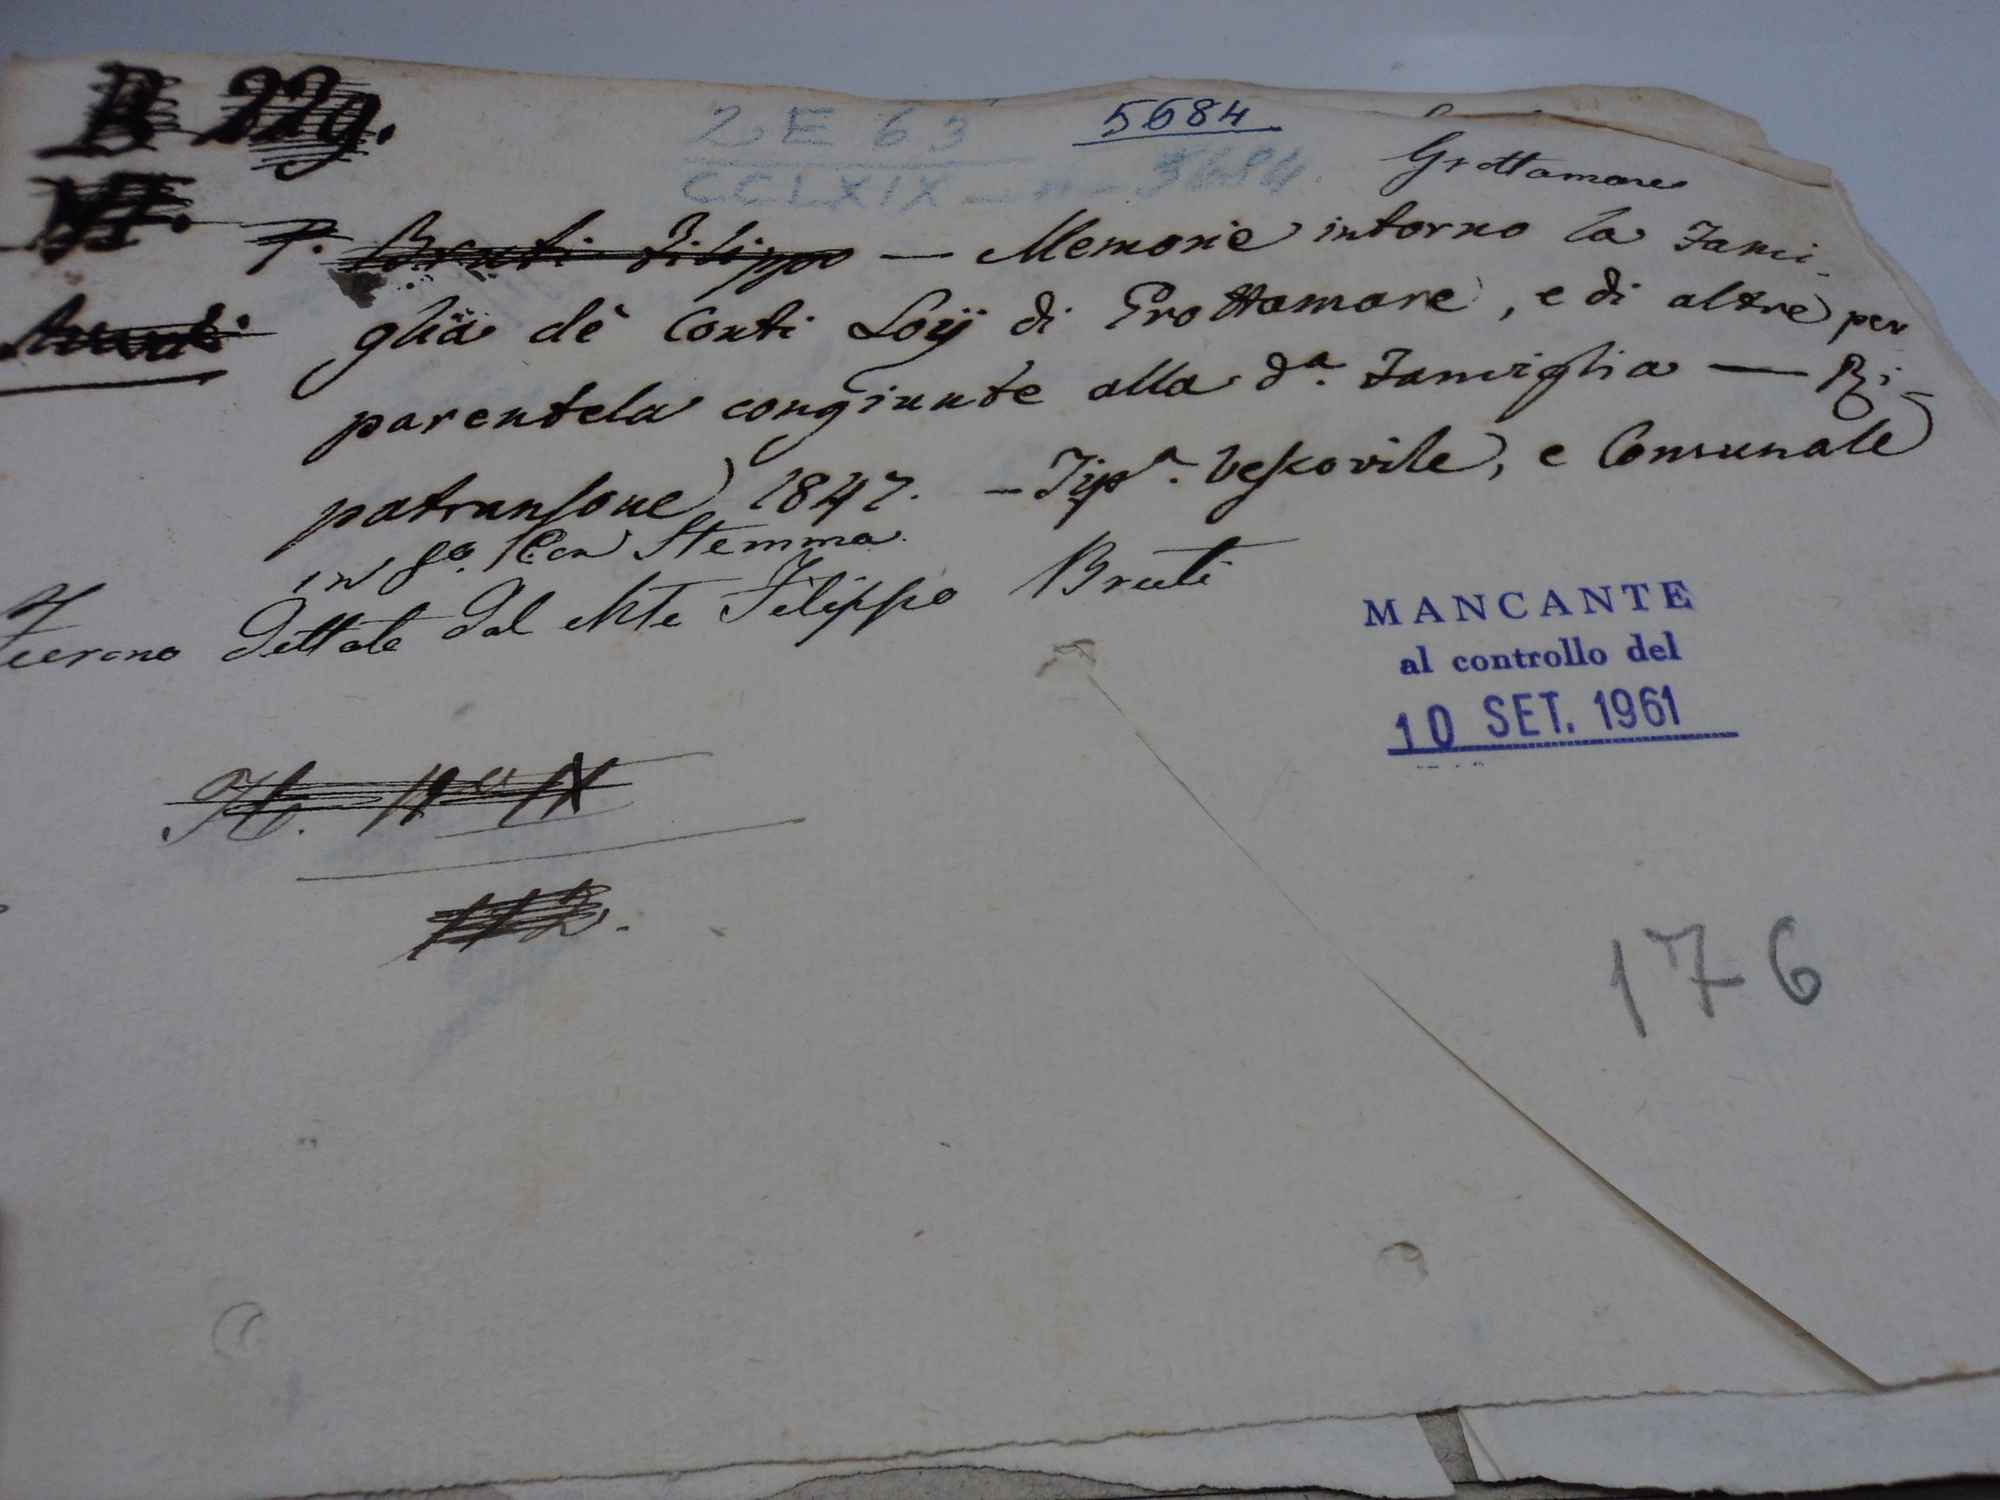 B 229.
2 E 63
5684
CCLXIX — n — 5684
Grottamare
VI.
P. Bruti Filippo — Memorie intorno la Fami-
glia dè Conti Loij di Grottamare, e di altre per
parentela congiunte alla da. Famiglia — Ri-
patransone 1847. — Tipa. Vescovile, e Comunale
in 8o. Con Stemma.
Furono dettate dal Filippo Bruti
MANCANTE
al controllo del
10 SET. 1961
112.
176